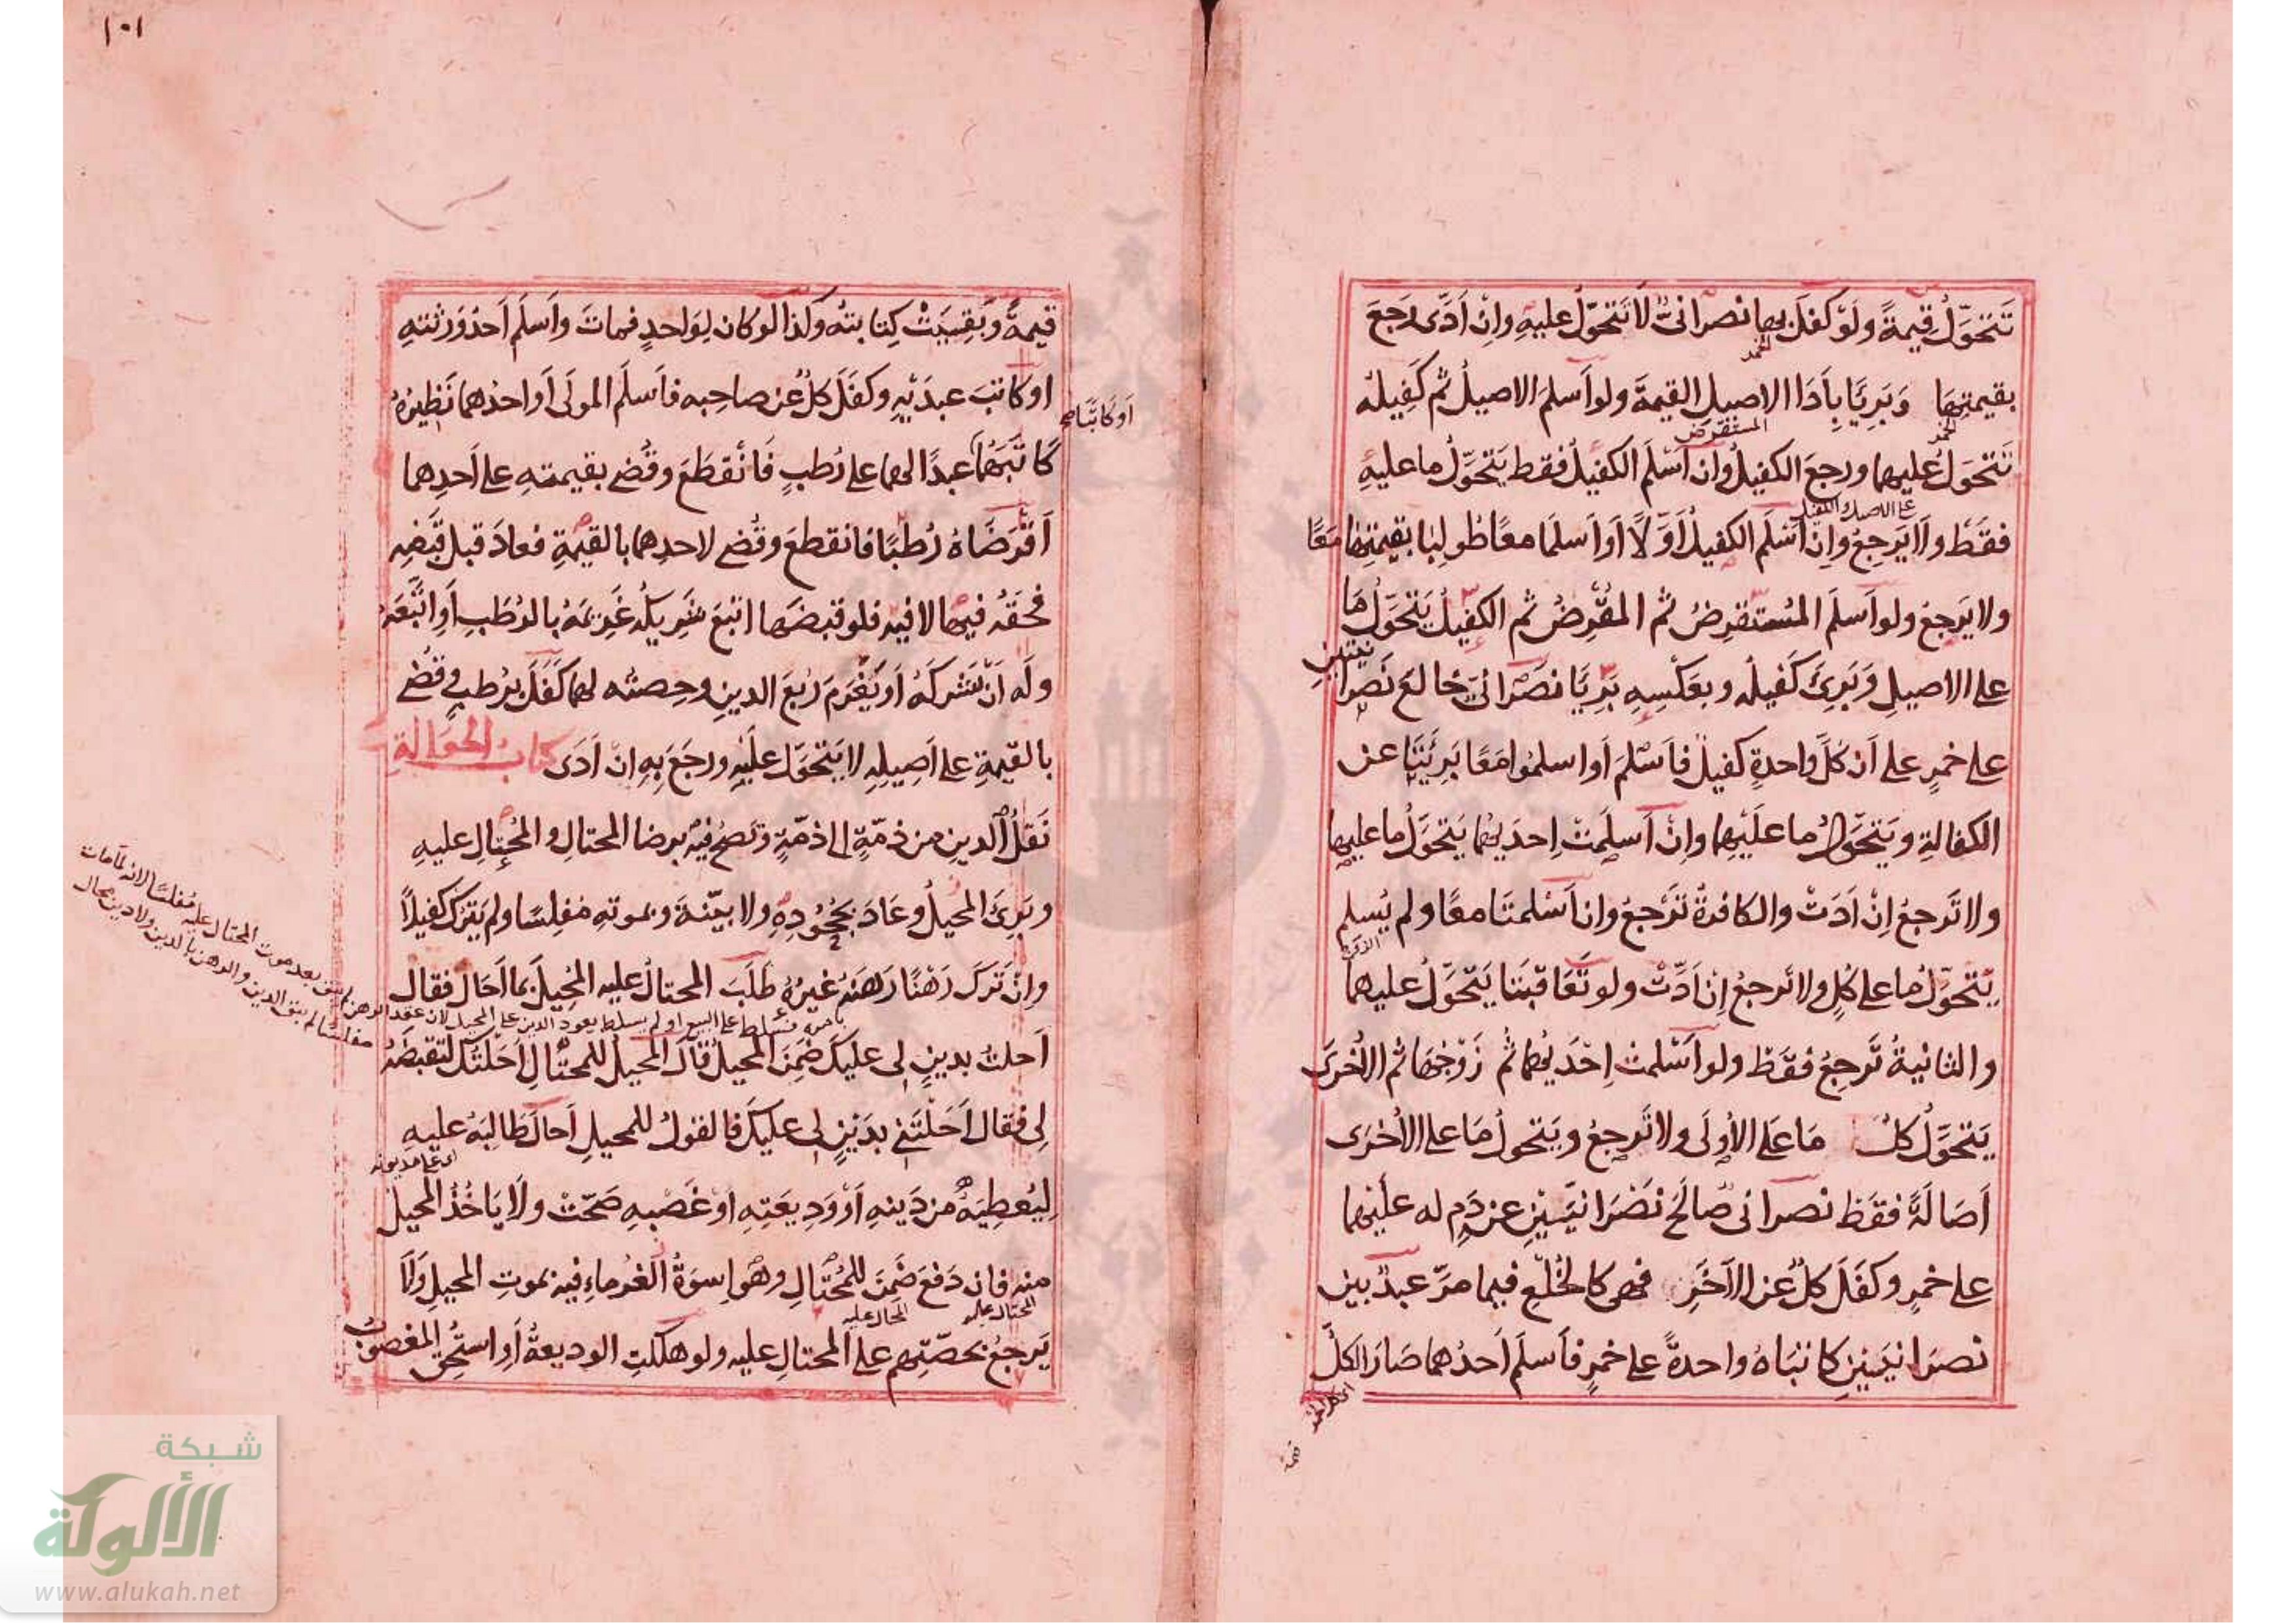 تَتَحَوَّلُ قِيمةً ولَوْ كفلَ بها نصرانىٌّ لَا تَتَحَوّلُ عليهِ وإنْ أَدَّى رَجعَ
الخمر
بقيمتِهَا وَبَرِيَا بِأَدَا الاصيلِ القيمةَ ولو أَسلمَ الاصيلُ ثم كَفِيلُه
الخمر
المستقرض
تَتحَوَلُ عليهما ورجعَ الكفيلُ وان أَسْلَمَ الكفيلُ فقط يَتَحَوَّلُ ما عليهِ
على الاصيل والكفيل
فقَطْ ولَا يَرجِعُ وإنْ أَسْلَمَ الكفيلُ أَوَّلًا أو أَسلَمَا معًا طُولِبَا بقيمتِهَا مَعًا
ولا يَرجعُ ولو أَسلَمَ المُستقرِضُ ثم المُقْرِضُ ثم الكفيلُ يَتَحَوَّلُ هَا
على الاصيلِ وَبَرِئَ كَفيلُه وبعَكْسِهِ بَرِيَا نصَرْانىٌّ خالعَ نَصرانيتينِ
على خمرٍ على أن كُلَّ واحدةٍ كفيلٌ فأَسْلَمَ أو اسلموُا مَعًا بَرِئَتَا عن
الكفالةِ ويَتحَّولُ ما علَيْهِما وإنْ أَسلَمَتْ إحدَيهُما يَتحَوَّلُ ما عليها
ولا تَرجعُ إنْ أدَتْ والكافرةُ تَرْجعُ وان أَسْلمتَا معًا ولم يُسلم
الزوج
يتَحَوّلُ ما على كُلٍ ولا تَرجعُ إن أَدَّتْ ولو تَعَاقبَتا يَتْحَوَّلُ عليهما
والثانيةُ تَرجِعُ فقَطْ ولو أَسْلمتْ إحْدَيهُما ثم زَوْجُهَا ثم الأُخرَى
يَتحَوَّلُ كلُّ مَا عَلَى الأُولَى ولا تَرجعُ ويَتحولُ مَا على الأُخرَى
أَصَالَةً فقَطْ نصرانىٌ صَالحَ نَصْرَانيَّيْنِ عن دَمٍ له علَيْهما
على خمرٍ وكفَلَ كلٌّ عن الآخَرِ فهى كالخُلْعِ فيما مرّ عبدٌ بين
نصرَانيَينِ كاتبَاهُ واحدةً على خمرٍ فأَسلَمَ أَحدُهما صَارَ الكلُّ
اى كل الخمر
قيمة
١٠١
قيمةً وبَقيَتْ كِتابتُه وكَذا لو كان لِوَاحدٍ فمات وأَسلَمَ أَحدُ وَرَثتهِ
او كاتبَ عبدَيْهِ وكفَلَ كلٌ عن صاحِبه فأَسلَمَ المولَى أو احدُهما نَظِيرُهُ
أو كاتبا صح
كَاتَبَهُمَا عبدًا لهما على رُطبٍ فأنقطَعَ وقُضى بقيمتهِ على أَحدِهما
أَقرَضَاهُ رُطبًا فانقطعَ وقُضى لاحدِهما بالقيمةِ فعادَ قبل قَبَضِه
فحَقُه فيها لا فيه فلو قبَضَها اتبعَ شَرِيكُه غَرِيمَهُ بالرُطَبِ أَو اتَّبَعَهُ
ولَه أنْ يَشركَهُ أو يَغْرَمَ رُبعَ الدينِ وحِصتُه لهما كَفَلَ برُطبٍ وقُضى
بالقيمةِ على أَصيلِهِ لا يَتحَوَّلُ علَيْهِ ورجَعَ بِهِ انْ أَدَى كتابُ الحوَالةِ
نَقلُ الدينِ من ذمّةٍ الى ذمّةٍ وتَصُحُ فيه برضا المحتالِ والمُحتالِ عليهِ
وبَرِئَ المحيلُ وعَادَ بجُحُودِهِ ولا بيّنةَ وبموتهِ مُفلِسًا ولم يَترُكْ كفيلًا
وإنْ تَركَ رَهْنًا رَهَنه غيرُهُ طَلَبَ المحتالُ عليه المُحِيلَ بما أَحَالَ فقال
أَحلتُ بدينٍ لى علَيكَ ضَمِنَ المحيلُ قالَ المحيلُ للمحتالِ أَحَلتُكَ لتَقبضَهُ
لِى فقال أَحَلْتَنى بدَيْنٍ لى عليكَ فالقولُ للمحيلِ أَحالَ طَالبَهُ عليهِ
اى على مديونه
ليُعطِيَهُ من دَينهِ أوْ وَدِيعَتِهِ أوْ غَصْبهِ صَحّتْ ولَا يَاخُذُ المحيلُ
منه فإن دَفعَ ضَمِنَ للمُحتَالِ وهُو إسوَةُ الغُرماءِ فيه بموتِ المحيلِ وَلَا
المحتال عليه
المحال عليه
يَرجعُ بحصّتِهم على المحتالِ عليه ولو هلكتِ الوديعةُ أو استُحِقَ المغصوبُ
لم يبق بعد موت المحتال عليه مفلسًا لانه لما مات
مفلسًا لم يبق الدين والرهن بالدين ولا دين محال
شبكة
الألوكة
www.alukah.net